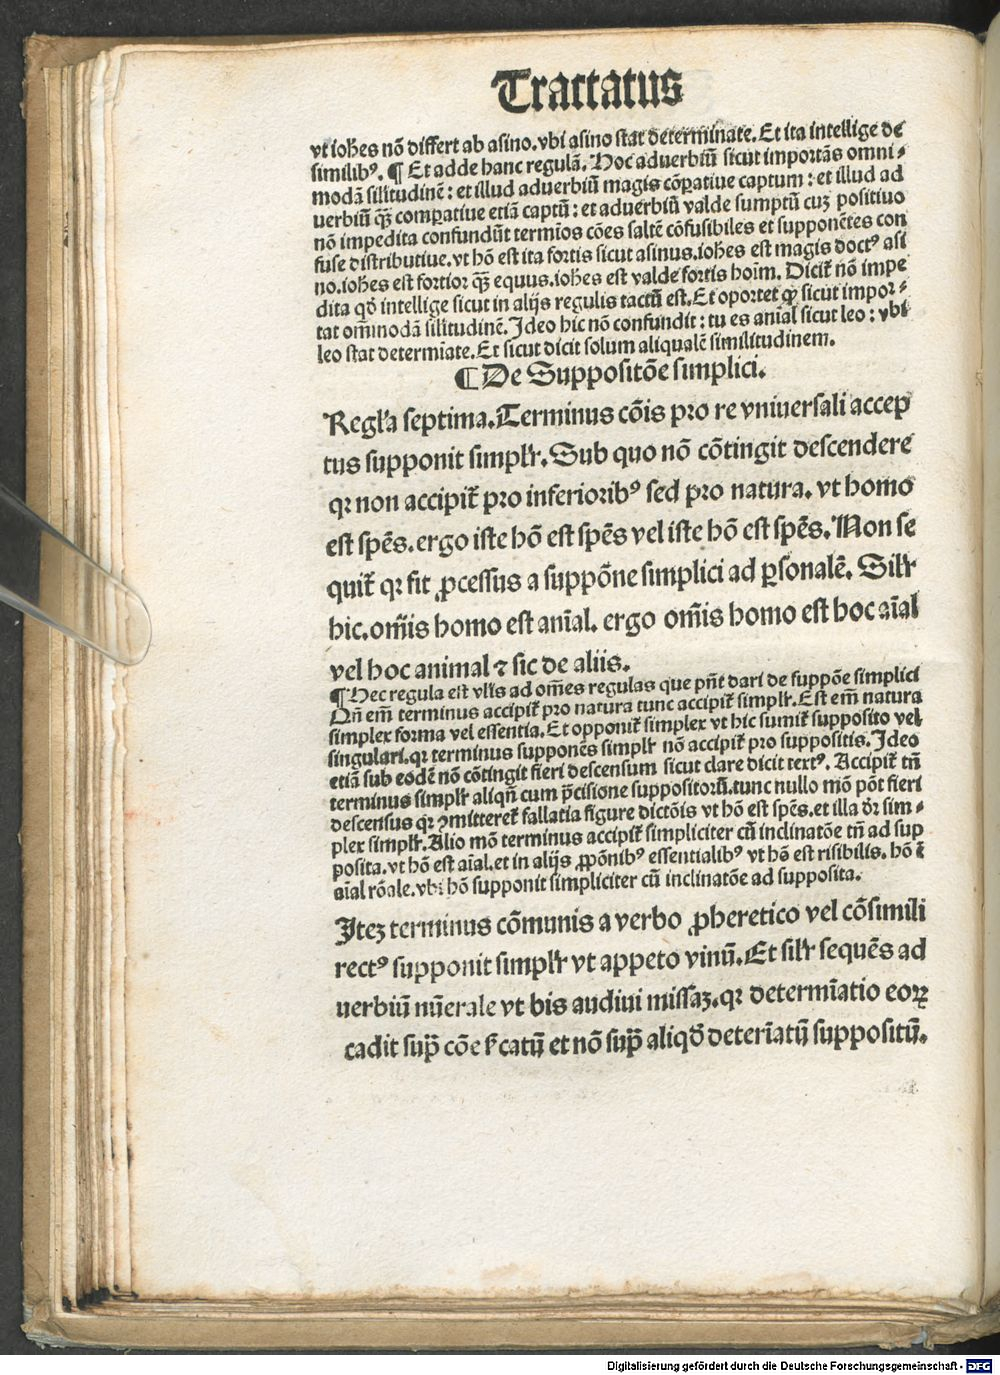 Tractatus
vt ioh̄es nō differt ab asino. vbi asino stat determinate. Et ita intellige de
similibꝰ. ¶ Et adde hanc regulā. Hoc aduerbiū sicut importās omni-
modā silitudinē: et illud aduerbiū magis cōꝑatiue captum: et illud ad
uerbiū qȝ̄ comꝑatiue etiā captū: et aduerbiū valde sumptū cuȝ positiuo
nō impedita confundūt termīos cōes saltē cōfusibiles et supponētes con
fuse distributiue. vt hō est ita fortis sicut asinus. ioh̄es est magis doctꝰ asi
no. ioh̄es est fortior qȝ̄ equus. ioh̄es est valde fortis hoīm. Dicit̄ nō impe
dita qđ intellige sicut in alijs regulis tactū est. Et oportet ꝙ sicut impor-
tat om̄imodā silitudinē. Ideo hic nō confundit: tu es anīal sicut leo: vbi
leo stat determīate. Et sicut dicit solum aliqualē similitudinem.
¶ De Suppositōe simplici.
Regl̄a septima. Terminus cōis pro re vniuersali accep
tus supponit simplr̄. Sub quo nō cōtingit descendere
qꝛ non accipit̄ pro inferioribꝰ sed pro natura. vt homo
est spēs. ergo iste hō est spēs vel iste hō est spēs. Non se
quit̄ qꝛ fit ꝓcessus a suppōne simplici ad ꝑsonalē. Silr̄
hic. om̄is homo est anīal. ergo om̄is homo est hoc aīal
vel hoc animal ⁊ sic de aliis.
¶ Hec regula est vl̄is ad om̄es regulas que pn̄t dari de suppōe simplici
Qn̄ em̄ terminus accipit̄ pro natura tunc accipit̄ simplr̄. Est em̄ natura
simplex forma vel essentia. Et opponit̄ simplex vt hic sumit̄ supposito vel
singulari. qꝛ terminus supponēs simplr̄ nō accipit̄ pro suppositis. Ideo
etiā sub eodē nō cōtingit fieri descensum sicut clare dicit textꝰ. Accipit̄ tn̄
terminus simplr̄ aliqn̄ cum p̄cisione suppositorū. tunc nullo mō pōt fieri
descensus qꝛ ꝯmitteret̄ fallatia figure dictōis vt hō est spēs. et illa dr̄ sim-
plex simplr̄. Alio mō terminus accipit̄ simpliciter cū inclinatōe tn̄ ad sup
posita. vt hō est aīal. et in alijs ꝓpōnibꝰ essentialibꝰ vt hō est risibilis. hō ē
aīal rōale. vbi hō supponit simpliciter cū inclinatōe ad supposita.
Iteȝ terminus cōmunis a verbo ꝓheretico vel cōsimili
rectꝰ supponit simplr̄ vt appeto vinū. Et silr̄ sequēs ad
uerbiū nūerale vt bis audiui missaȝ. qꝛ determīatio eoꝝ
cadit sup̄ cōe sīcatū et nō sup̄ aliqđ deterīatū suppositū.
Digitalisierung gefördert durch die Deutsche Forschungsgemeinschaft - DFG